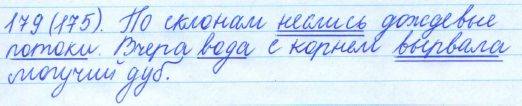 179 (175). По склонам неслись дождевые
потоки. Вчера вода с корнем вырвала
могучий дуб.